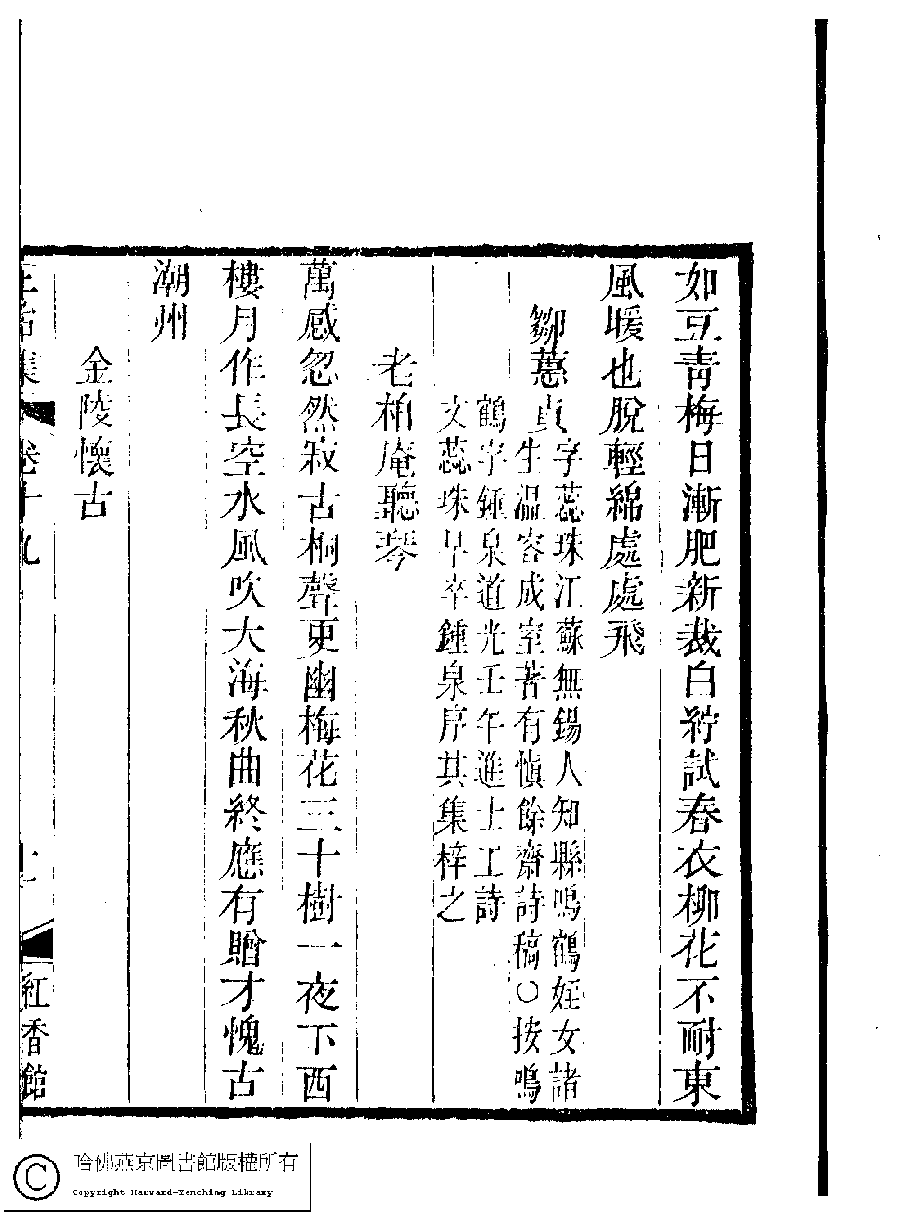 如豆靑梅日漸肥新裁白紵試春衣柳花不耐東
風暖也脫輕綿處處飛
鄒蕙貞
字蕊珠江蘇無錫人知縣鳴鶴姪女諸
生温容成室著有愼餘齋詩稿〇按鳴
鶴字鍾泉道光壬午進士工詩
文蕊珠早卒鍾泉序其集梓之
老柏庵聽琴
萬感忽然寂古桐聲更幽梅花三十樹一夜下西
樓月作長空水風吹大海秋曲終應有贈才愧古
潮州
金陵懷古
集 卷十九
紅香館
哈佛燕京圖書館版權所有
Copyright Harvard-Yenching Library